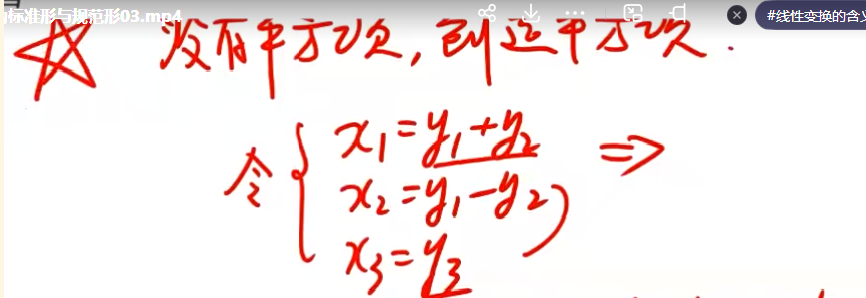 标准形与规范形03.mp4
#线性变换的含义
☆ 没有平方项, 创造平方项.
令 { x₁=y₁+y₂ ⇒
x₂=y₁-y₂
x₃=y₃